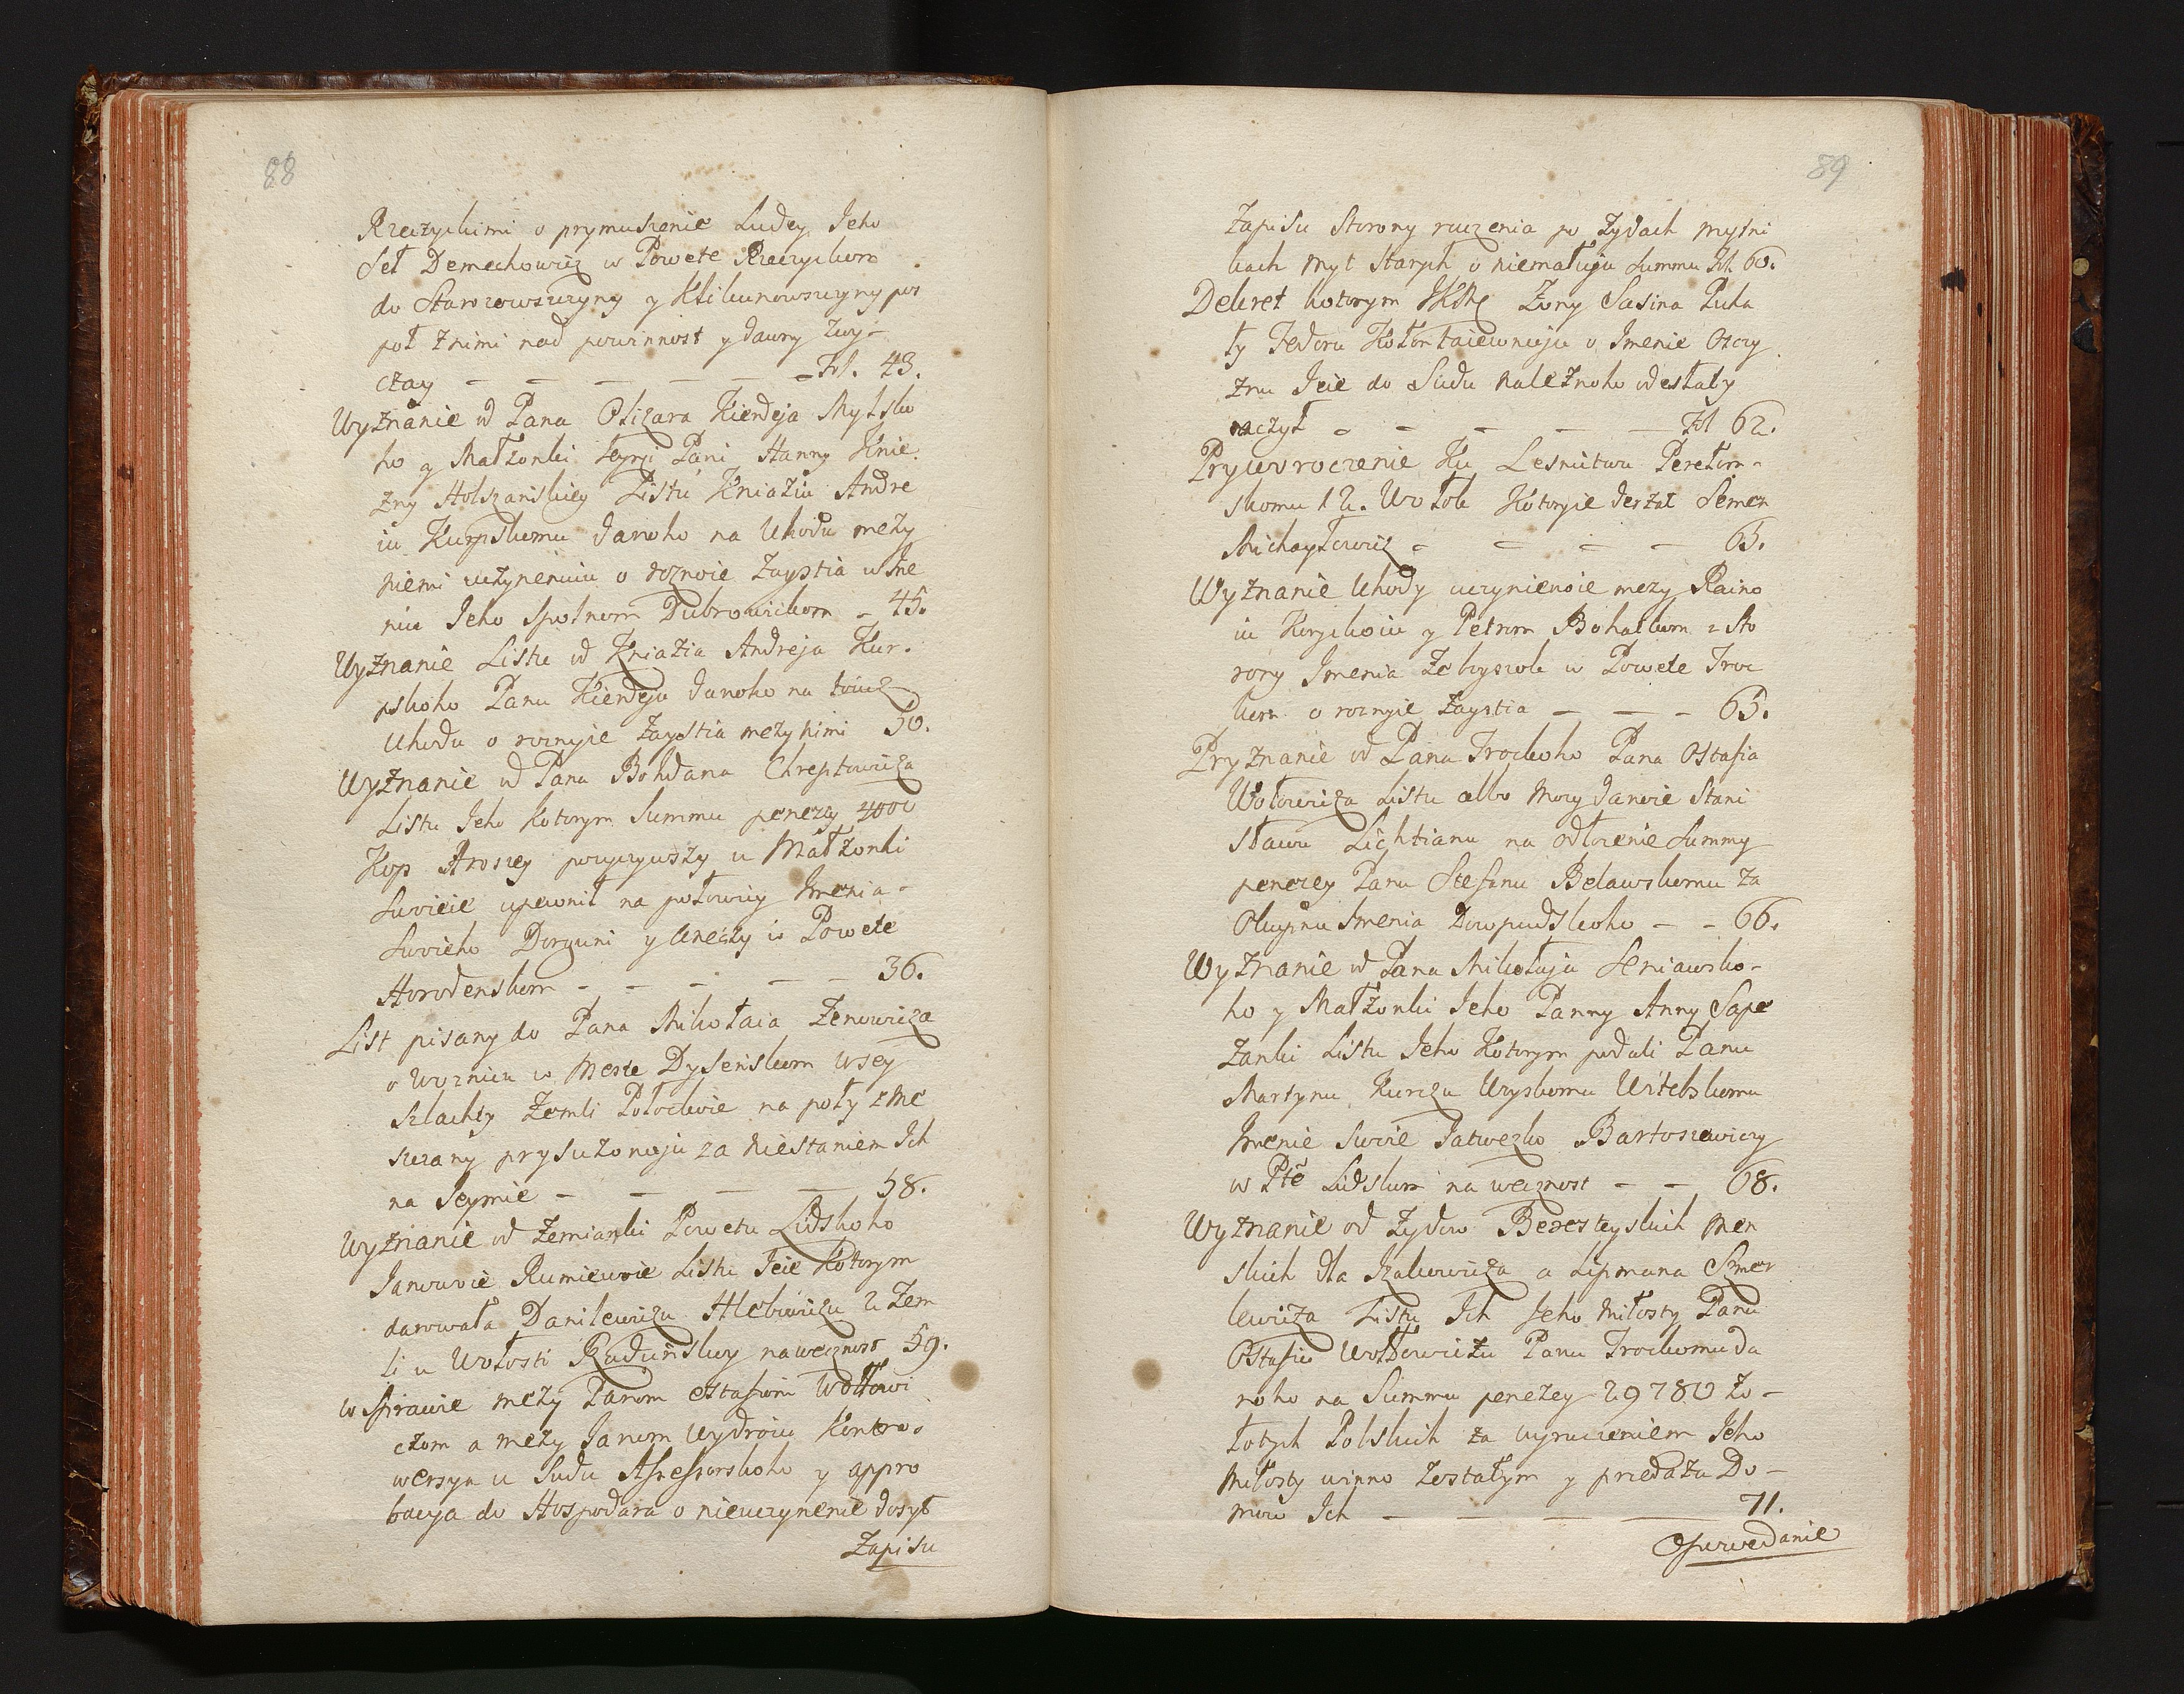 88
Rzeczyckimi o prymuszenie Ludey Jeho
Seł Demechowicz w Powete Rzeczyckom
do Starcowszczyny y Klikunowszczyny pos
poł z nimi nad powinnost y dawny zwy-
czay - - - - - - Fol. 43.
Wyznanie od Pana Olizara Kierdeja Mylsko
ho y Małżonki Jeyji Pani Hanny Knie
zny Holszanskiey Listu Kniaziu Andre
iu Kurpskomu danoho na Uhodu mezy
niemi uczynenuiu o roznoie Zaystia w Ime
niu Jeho Spolnom Dubrowickom - 45.
Wyznanie Listu od Kniazia Andreja Kur.
pskoho Panu Kierdeju danoho na tuiuz
Uhodu o roznyie Zaystia mezy nimi 50.
Wyznanie od Pana Bohdana Chreptowicza
Listu Jeho kotorym Summu penezy 4000
Kop Hroszey pozyczywszy u Małżonki
Swoieie upewnił na połowicy Imenia-
Swoieho Dorguni y Uneczy w Powete
Horodenskom - - - - - 36.
List pisany do Pana Mikołaia Zenowicza
o Woznicu w Meste Dysenskom wsey
Szlachty Zemli Połockoie na poły z Me
szczany prysużonuju za niestaniem Ich
na Seymie - - - - 58.
Wyznanie od Zemianki Powetu Lidskoho
Janowoie Rumiewoie Listu Jeie Kotorym
darowała Danilewiczu Hlebowiczu 2 Zem
li u Wołosti Raduńskoy na wecznost 59.
w Sprawie mezy Panom Ostafiom Wołłowi
czom a mezy Janom Wydroiu Kontro.
wersyu u Sudu Assessorskoho y appro
bacya do Hospodara o nieuczynenie dosyt
Zapisu
89
Zapisu Storony ruczenia po Zydach mytni
kach myt Starych o niemałuju Summu Fol. 60.
Dekret kotorym JKMc Zony Sasina Puka
ty Fedoru Kołontaiewnuju o Imenie Otczy
znu Jeie do Sudu należnoho odesłaty
raczył - - - - - Fol 62.
Prywroczenie Ku Lesnictwu Perełom-
skomu 12. Wołok Kotoryie derżał Semen
Michayłowicz - - - - 63.
Wyznanie Uhody uczynienoie mezy Raino
iu Koryckoiu y Petrom Bohatkom z Sto
rony Imenia Ze w Powete Troc
kom o roznyie Zaystia - - - 65.
Pryznanie od Pana Trockoho Pana Ostafia
Wołowicza Listu albo Mocy danoie Stani
sławu Lichtianu na odłozenie Summy
penezey Panu Stefanu Beławskomu za
Okupnu Imenia Dowpudskoho - - 66.
Wyznanie od Pana Mikołaju Seniawsko-
ho y Małżonki Jeho Panny Anny Sape
zanki Listu Jeho Kotorym podali Panu
Martynu Kurczu Woyskomu Witebskomu
Imenie Swoie Jatwezko Bartoszewiczy
w Pte Lidskom na wecznost - - 68.
Wyznanie od Zydow Beresteyskich Men
skich dla Izakowicza a Lipmana Szmer
lewicza Listu Ich Jeho Miłosty Panu
Ostafiu Wołłowiczu Panu Trockomu da
noho na Summu penezey 29780 Zo-
łotych Polskich za wyruczeniem Jeho
Miłosty winno zostałym y predaża Do-
mow Ich - - - - 71.
Opowedanie